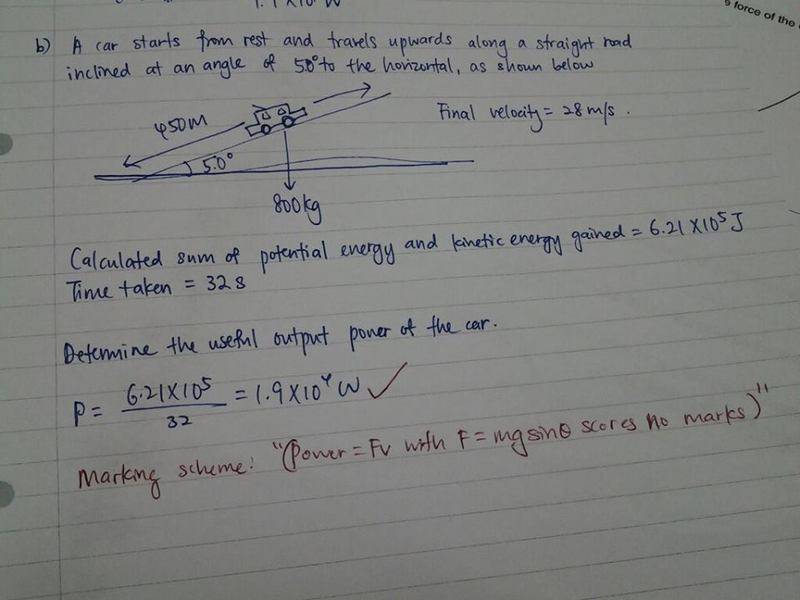 b) A car starts from rest and travels upwards along a straight road
inclined at an angle of 5.0° to the horizontal, as shown below
450M
Final velocity = 28 m/s.
5.0°
800kg
Calculated sum of potential energy and kinetic energy gained = 6.21 X 10⁵ J
Time taken = 32 s
Determine the useful output power of the car.
P = 6.21X10⁵ / 32 = 1.9 X 10⁴ W ✓
Marking scheme: "(power = Fv with F = mg sinθ scores no marks)"
force of the